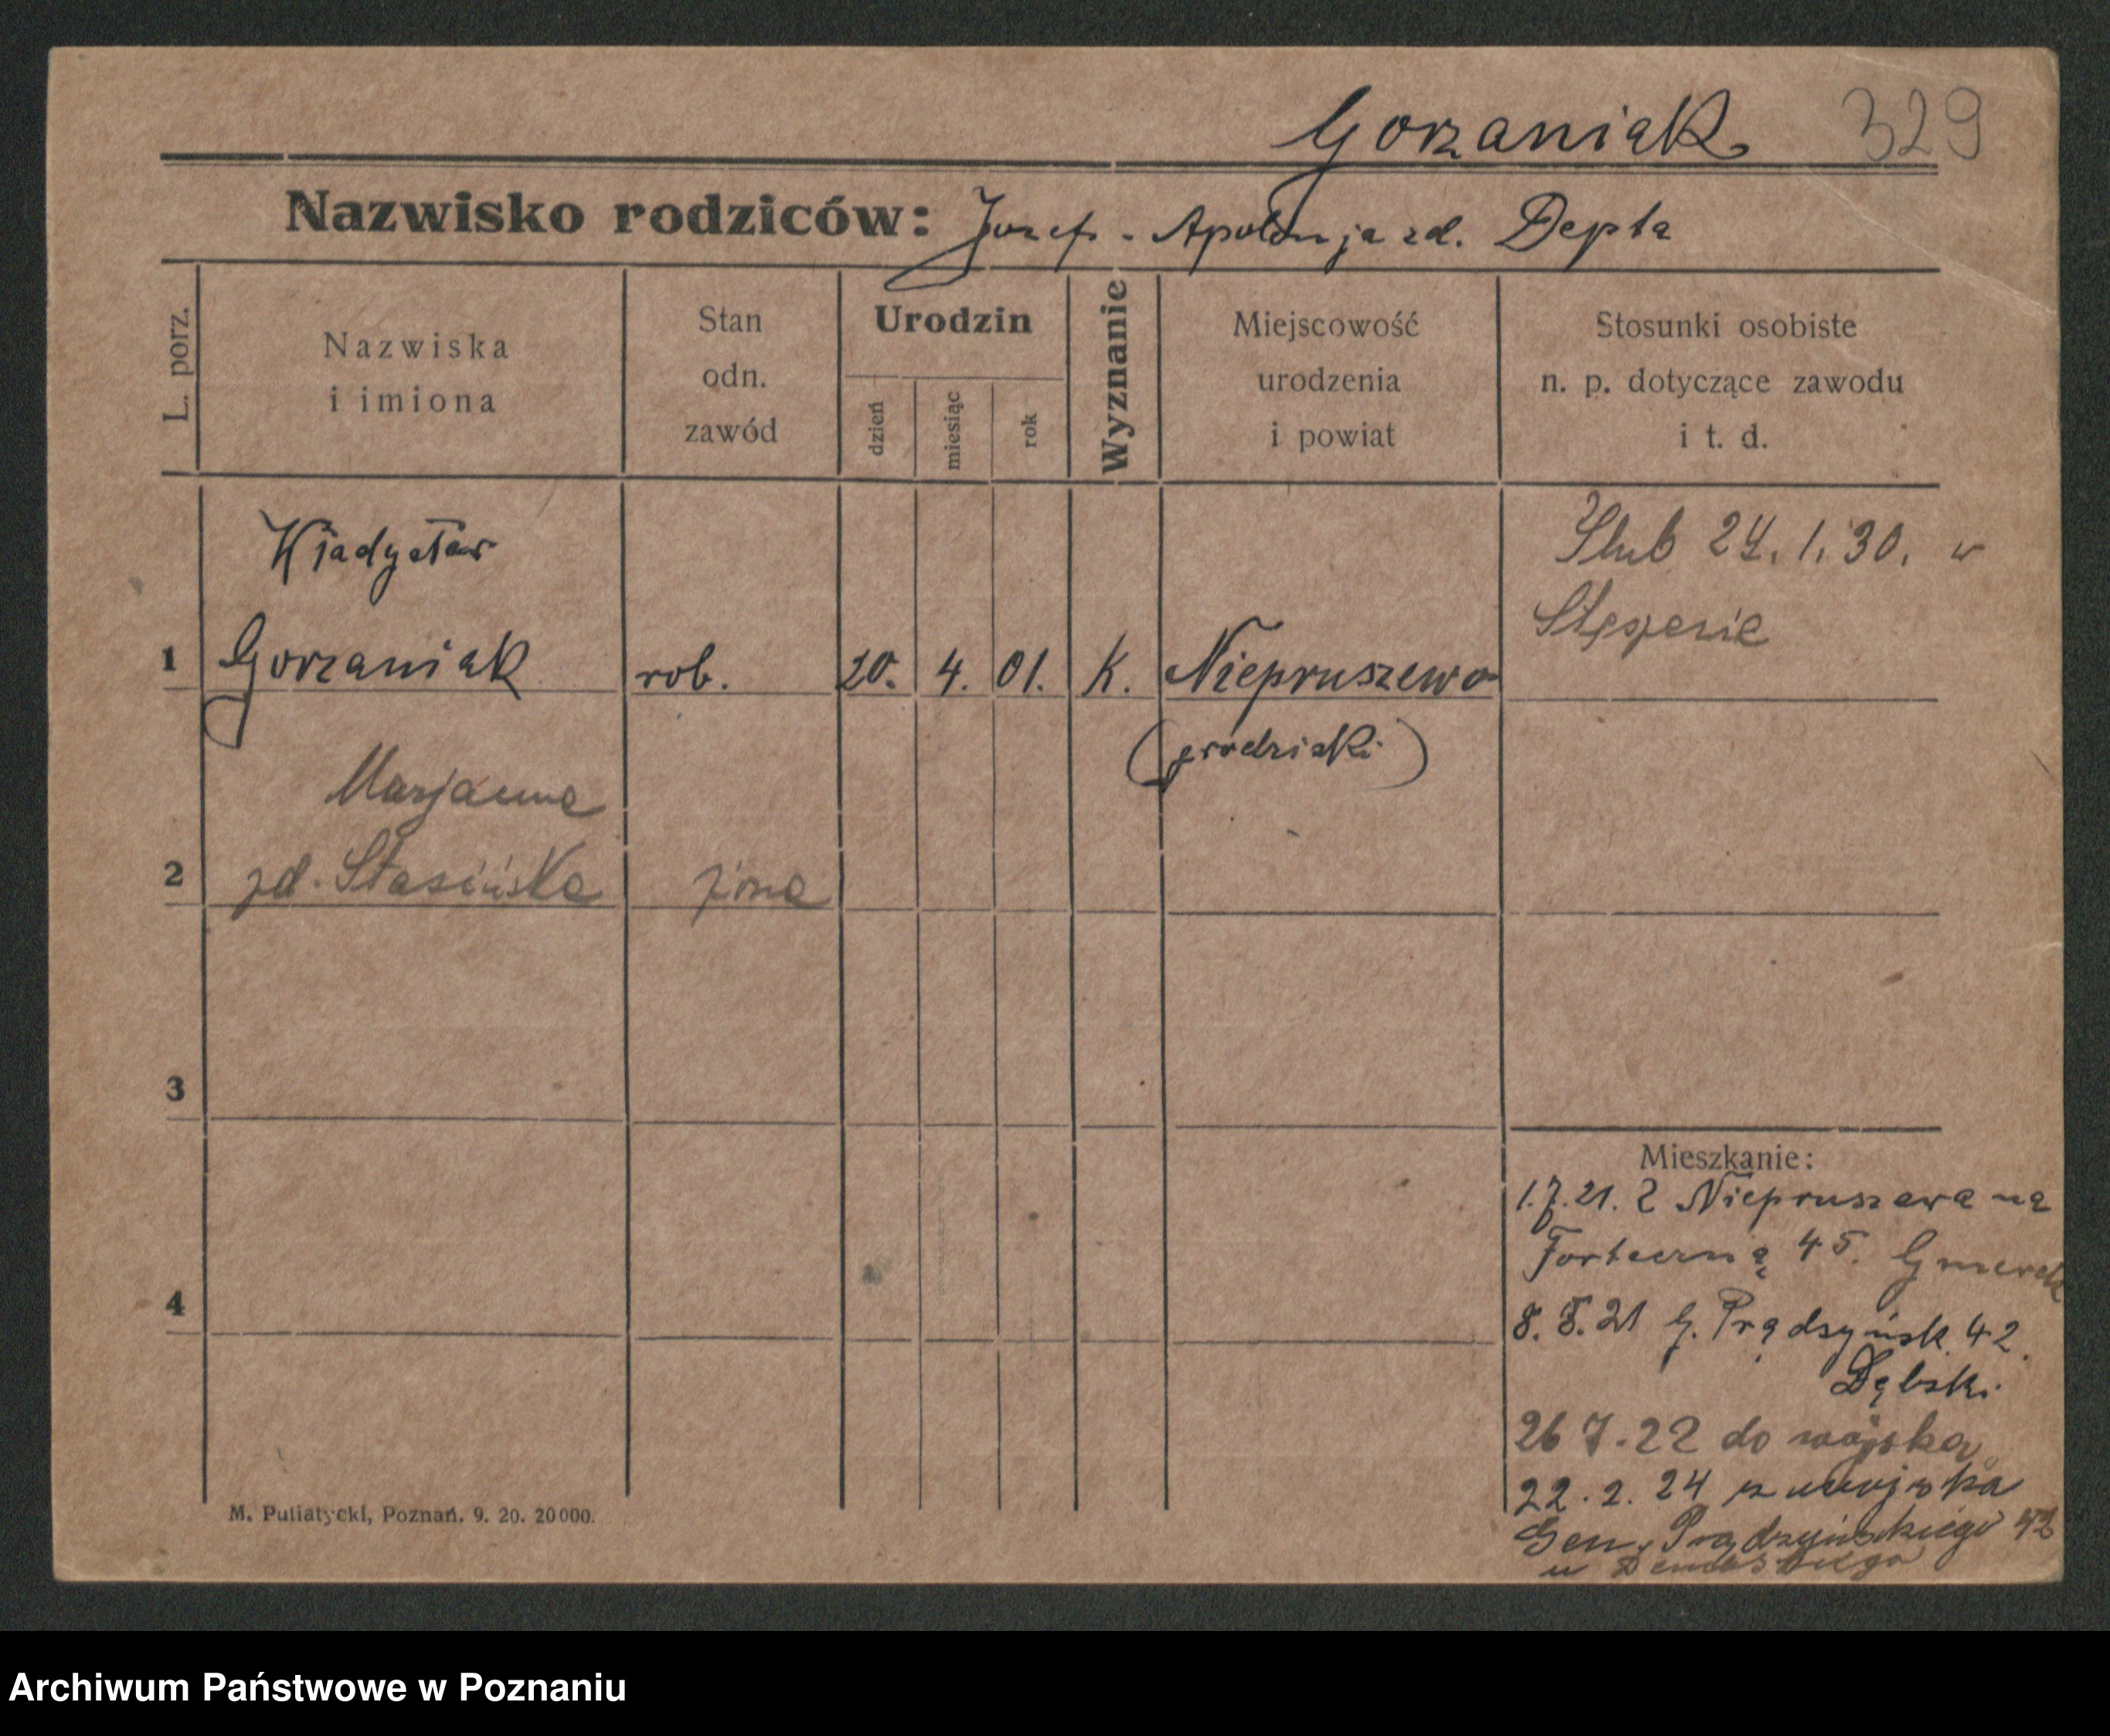 Gorzaniak 329
Nazwisko rodziców: Jozef - Apolonja zd. Depta
L. porz.
Nazwiska
i imiona
Stan
odn.
zawód
Urodzin
dzień
miesiąc
rok
Wyznanie
Miejscowość
urodzenia
i powiat
Stosunki osobiste
n. p. dotyczące zawodu
i t. d.
Władysław
1 Gorzaniak rob. 20. 4. 01. K. Niepruszewo
(grodziski)
Ślub 24. 1. 30. w
Stęszewie
Marjanna
2 zd. Stasińska żona
3
4
Mieszkanie:
1.7.21. Z Niepruszewa na
Forteczną 45.
8.8.21 G. Prądzyńsk. 42.
Dębski
26 7.22 do wojska
22.2.24 z wojska
Gen. Prądzyńskiego 42
u
M. Putiatycki, Poznań. 9. 20. 20000.
Archiwum Państwowe w Poznaniu